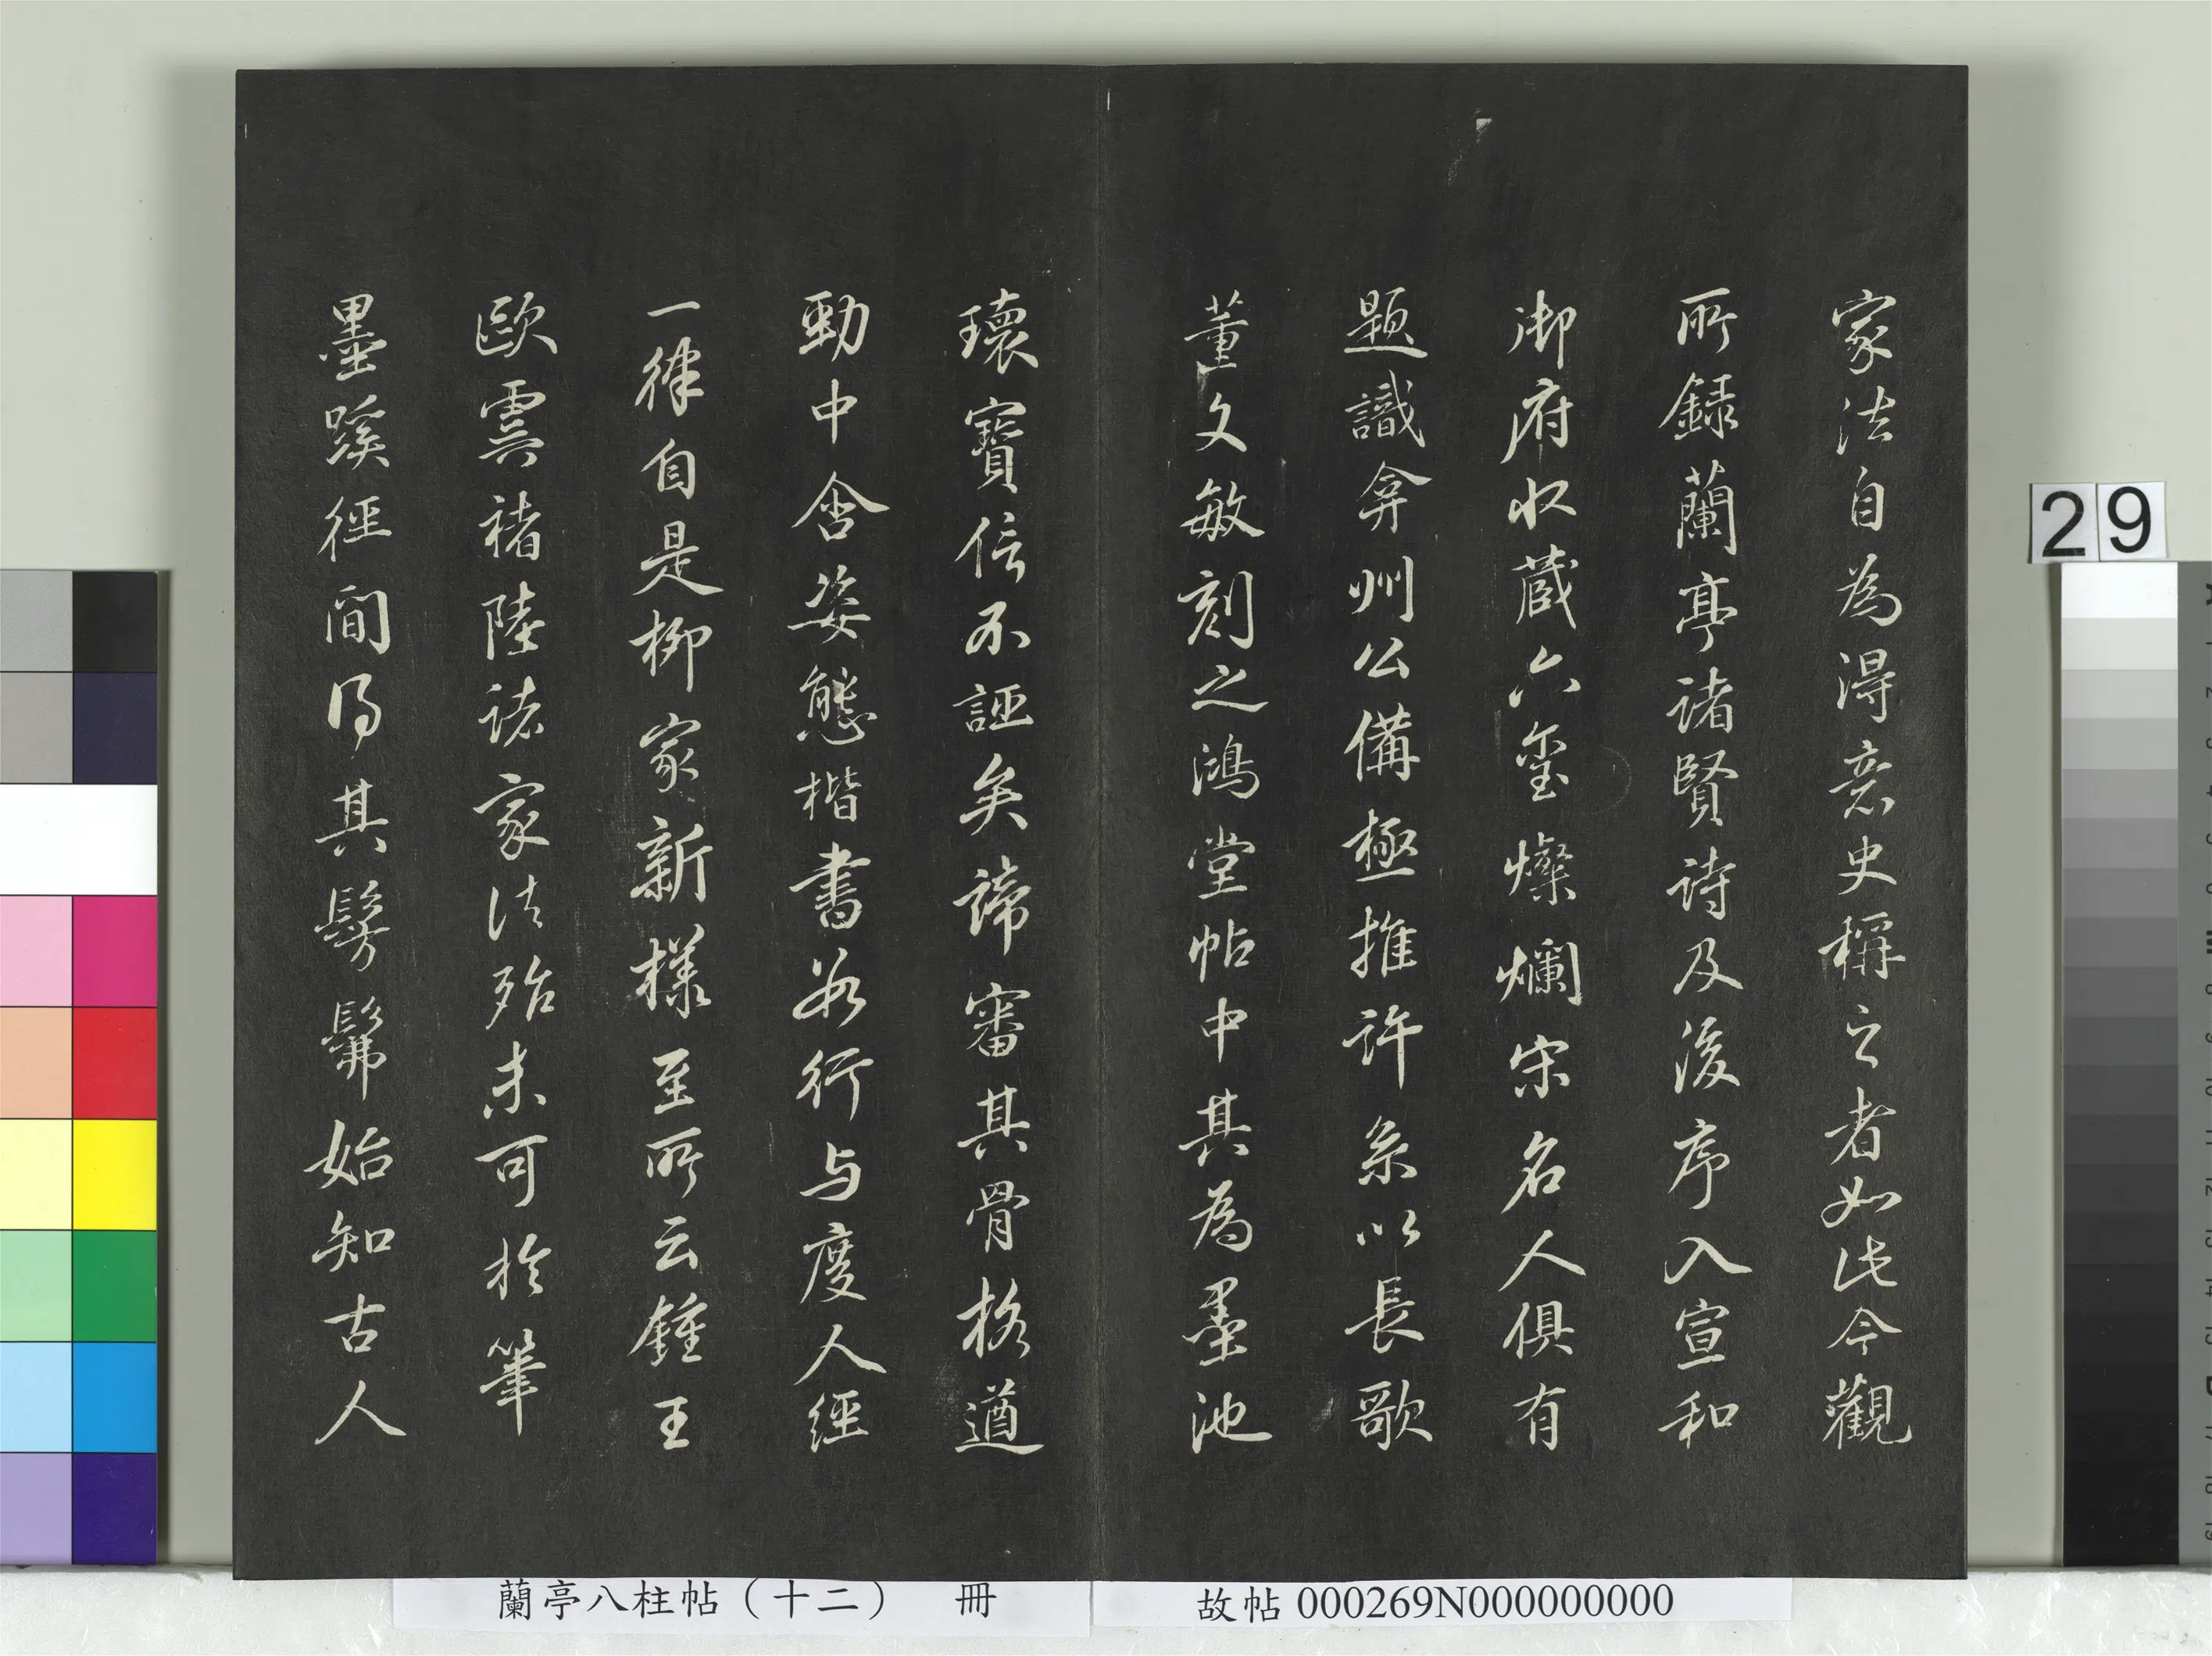 家法自為得意史稱之者如此今觀
所錄蘭亭諸賢詩及後序入宣和
御府收蔵六璽燦爛宋名人俱有
題識弇州公備極推許系以長歌
董文敏刻之鴻堂帖中其為墨池
瓌寶信不誣矣諦審其骨格遒
勁中含姿態楷書必行与度人經
一律自是柳家新樣至所云鍾王
歐虞褚陸諸家法殆未可於筆
墨蹊徑間得其髣髴始知古人
29
蘭亭八柱帖（十二） 冊
故帖 000269N000000000